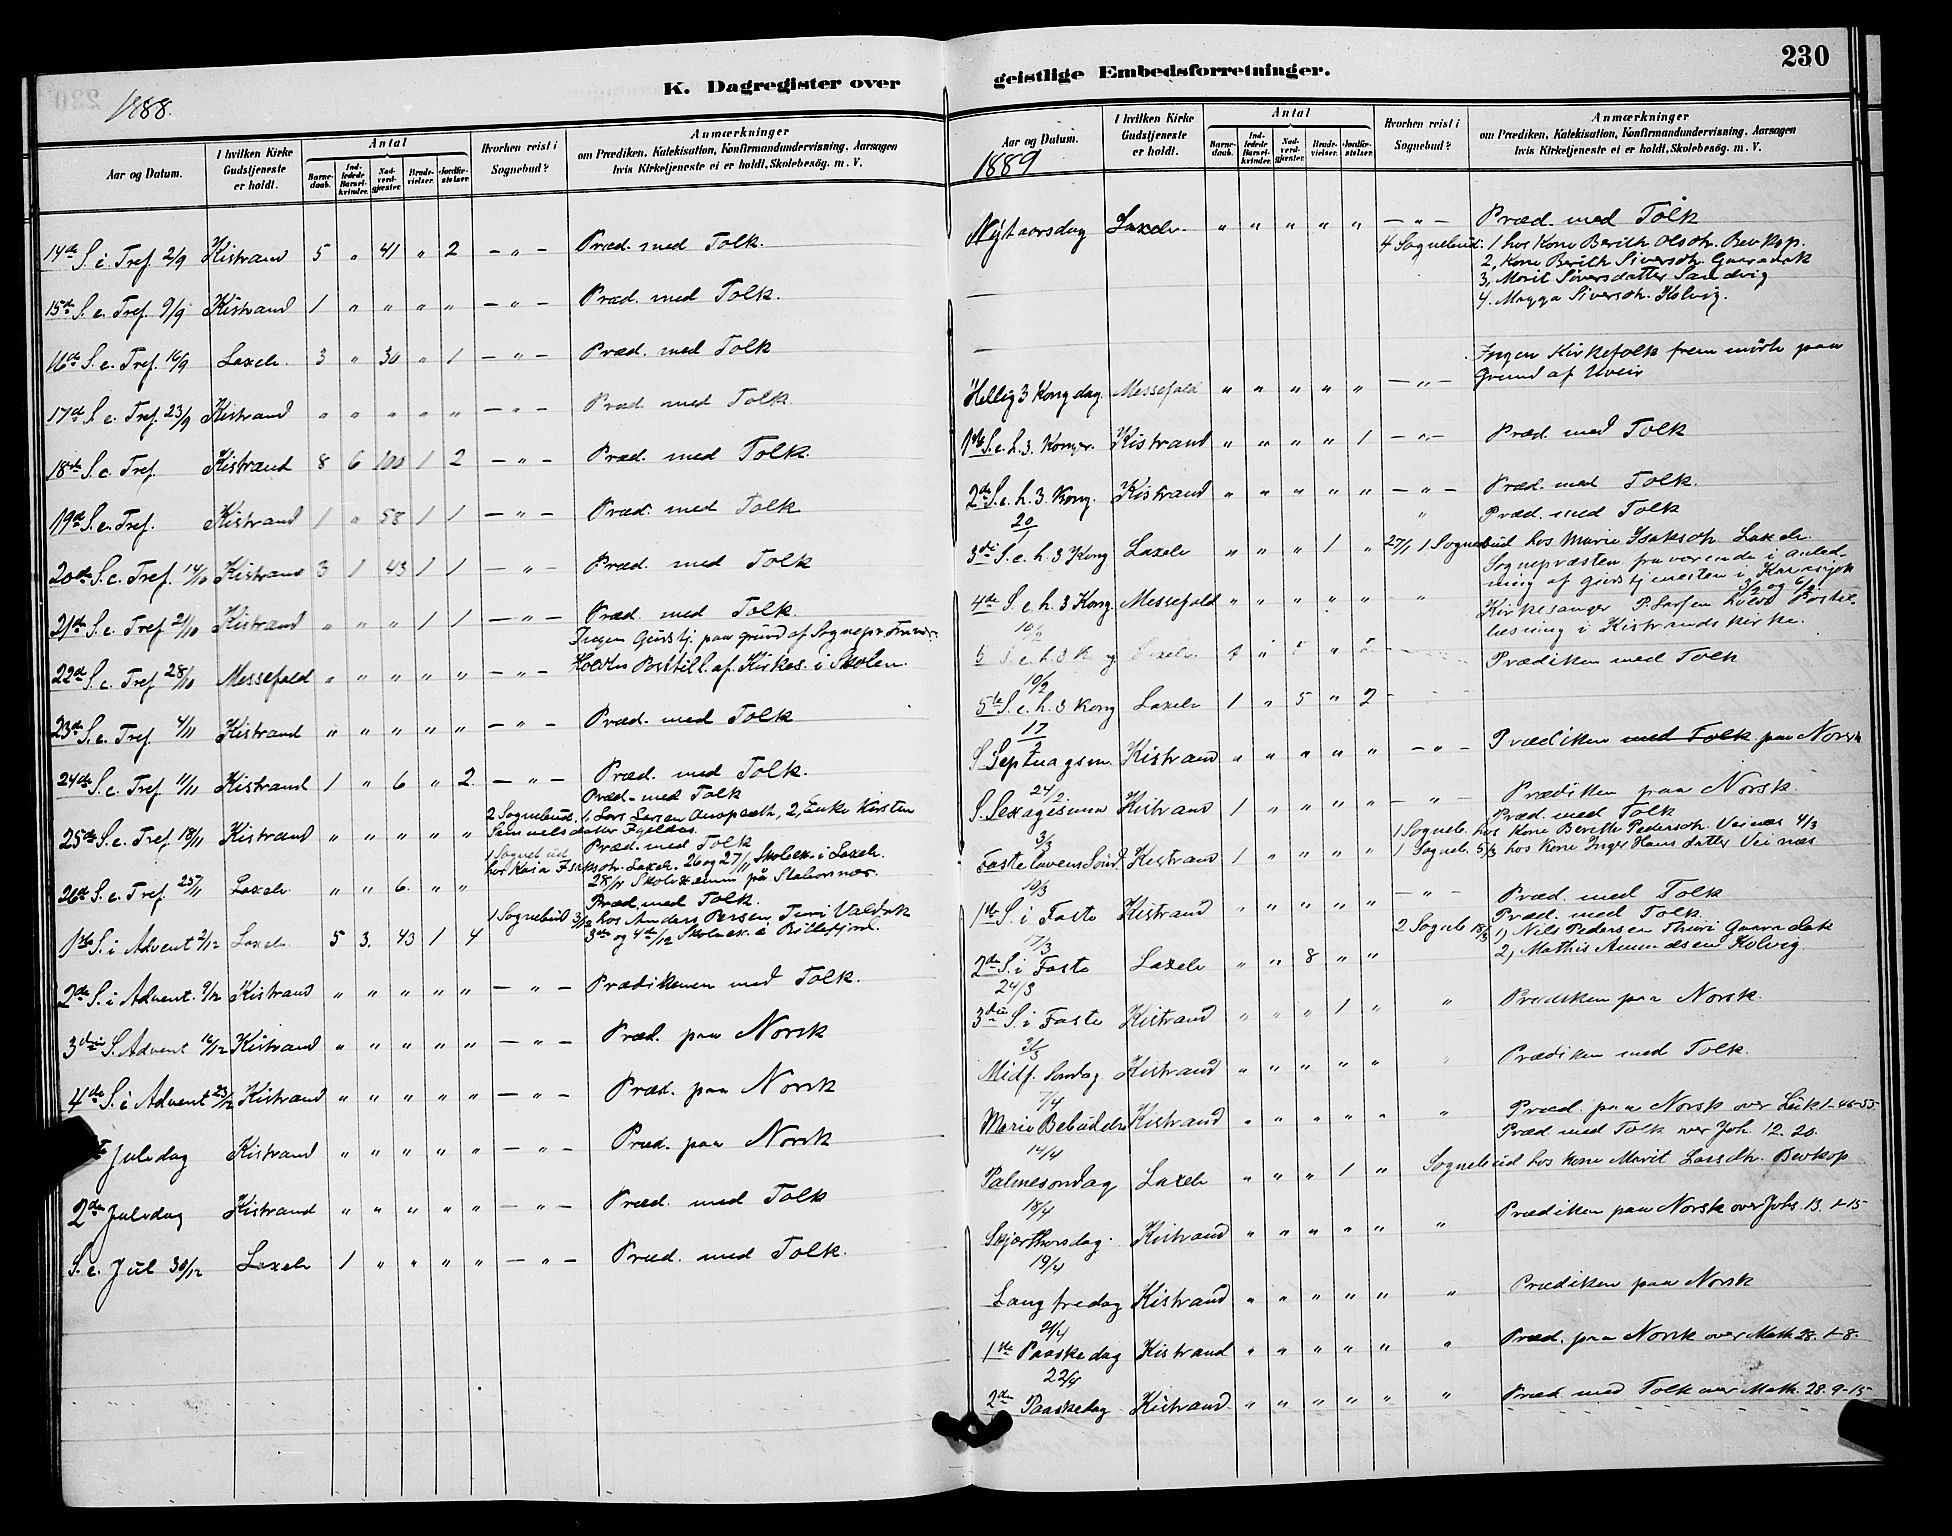 230
K. Dagregister over geistlige Embedsforretninger.
1888.
Aar og Datum.
I hvilken Kirke Gudstjeneste er holdt.
Antal
Barnedaab.
Indledede Barselkvinder.
Nadverdgjester.
Brudevielser.
Jordfæstelser.
Hvorhen reist i Sognebud?
Anmærkninger
om Prædiken, Katekisation, Konfirmandundervisning, Aarsagen
hvis Kirketjeneste ei er holdt, Skolebesøg. m. V.
14de S. e. Tref. 2/9 Kistrand 5 " 41 " 2 — " — Præd. med Tolk.
15de S. e. Tref. 9/9 Kistrand 1 " " " " — " — Præd. med Tolk.
16de S. e. Tref. 16/9 Laxelv. 3 " 30 " 1 — " — Præd. med Tolk
17de S. e. Tref. 23/9 Kistrand " " " " " — " — Præd. med Tolk.
18de S. e. Tref. Kistrand 8 6 100 1 2 — " — Præd. med Tolk.
19de S. e. Tref. Kistrand 1 " 58 1 1 — " — Præd. med Tolk
20de S. e. Tref. 14/10 Kistrand 3 1 43 1 1 — " — Præd. med Tolk
21de S. e. Tref 21/10 Kistrand " " " 1 1 — " — Præd. med Tolk.
Ingen Gudstj. paa grund af Sognepr
22de S. e. Tref 28/10 Messefold " " " " " — " — Holdtes Postill. af Kirkes. i Skolen.
23de S. e. Tref. 4/11 Kistrand " " " " " — " — Præd. med Tolk
24de S. e. Tref. 11/11 Kistrand 1 " 6 " 2 — " — Præd. med Tolk.
Præd. med Tolk
2 Sognebud. 1, Lars Larsen 2, Enke Kirsten
25de S. e. Tref 18/11 Kistrand " " " " " Samuelsdatter
Præd. med Tolk
1 Sognebud hos Laxelv. 26 og 27/11 Skoleex. i Laxelv.
26de S. e. Tref 25/11 Laxelv " " 6. " " 28/11 Skoleexamen på Stabursnæs.
Præd. med Tolk.
1 Sognebud 3/12 hos Anders Persen,
1ste S. i Advent 2/12 Laxelv 5 3. 43 1 4 3de og 4de/12 Skoleex. i Billefjord.
2de S. i Advent. 9/12 Kistrand " " " " " — " — Prædikenen med Tolk.
3die S. Advent 16/12 Kistrand " " " " " — " — Præd. paa Norsk
4de S. i Advent 23/12 Kistrand " " " " " — " — Præd. paa Norsk
Juledag Kistrand " " " " " — " — Præd. paa Norsk
2den Juledag Kistrand " " " " " — " — Præd. med Tolk
S. e. Jul 30/12 Laxelv 1 " " " " — " — Præd. med Tolk.
Aar og Datum.
1889
I hvilken Kirke Gudstjeneste er holdt.
Antal
Barnedaab.
Indledede Barselkvinder.
Nadverdgjester.
Brudevielser.
Jordfæstelser.
Hvorhen reist i Sognebud?
Anmærkninger
om Prædiken, Katekisation, Konfirmandundervisning, Aarsagen
hvis Kirketjeneste ei er holdt, Skolebesøg. m. V.
Nytaarsdag Laxelv. " " " " " — " — Præd. med Tolk
4 Sognebud: 1 hos Kone Berith Olsdtr. Bevkop.
2, Kone Berith Siversdtr.
3, Marit Siversdatter Sandvig
4. Magga Siversdtr. Kolvig.
Ingen Kirkefolk frem mødte paa
Hellig 3 Kong dag. Messefold " " " " " — " — Grund af Uveir
1ste S. e. h. 3. Konger. Kistrand " " " " 1 — " — Præd. med Tolk
2de S. e. h. 3. Kong. Kistrand " " " " " — " — Præd. med Tolk.
20/1 " Præd. med Tolk
3die S. e. h. 3 Kong Laxelv " " " 1 " 27/1 1 Sognebud hos Marie Isaksdtr Laxelv.
Sognepræsten fraværende i anledning af Gudstjenesten i Karasjok
4de S. e. h. 3 Kong Messefold " " " " " " 3/2 og 6/2
Kirkesanger P. holdt Postillæsning i Kistrands kirke.
10/2
5 S. e. h. 3 K g Laxelv Prædiken med Tolk
10/2
5te S. e. h. 3 Kong Laxelv 1 " 5 " 2
17/2
S. Septuagsm. Kistrand " " " " " — " — Prædiken med Tolk paa Norsk
24/2
S. Sexagisima Kistrand 1 " " " " — " — Prædiken paa Norsk.
3/3 Præd. med Tolk
1 Sogneb. hos Kone Berithe Pedersdtr. Veinæs 4/3
Fastelavens Sønd. Kistrand 1 " " " " 1 Sogneb. 5/3 hos Kone Inger Hansdatter Veinæs
10/3
1ste S. i Faste Kistrand " " " " " — " — Præd. med Tolk
17/3 Præd. med Tolk
2 Sogneb 18/3 1, Nils Pedersen
2de S. i Faste Laxelv " " 8 " " 2, Mathis Kolvig.
24/3
3die S. i Faste Kistrand " " " 1 " " Prædiken paa Norsk.
31/3
Midf. Søndag Kistrand " " " " " Prædiken med Tolk.
7/4
Marie Bebudelse Kistrand " " " " " " Præd. paa Norsk over Luk 1-46-55
14/4 Præd med Tolk over Joh. 12. 20.
Palmesøndag Laxelv " " " 1 " Sognebud hos Kone Marit Larsdtr. Bevkop
18/4
Skjærthorsdag. Kistrand " " " " " " Prædiken paa Norsk over Johs. 13. 1-15
19/4
Langfredag Kistrand " " " " " " Prædiken paa Norsk
21/4
1ste Paaskedag Kistrand " " " " " " Præd. paa Norsk over Math 28. 1-8.
22/4
2den Paaskedag Kistrand " " " " " " Præd. med Tolk over Math. 28. 9-15